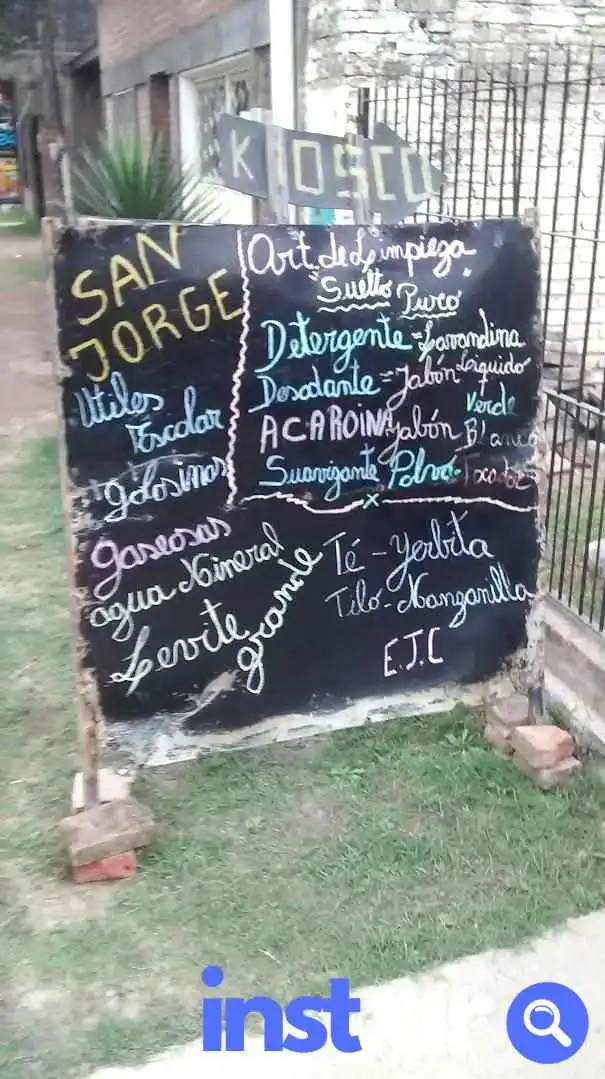 KIOSCO
SAN
JORGE
Utiles
Escolar
golosinas
Art. de Limpieza
"Suelto Puro"
Detergente = Lavandina
Desodante = Jabón Liquido
Verde
ACAROINA Jabón Blanco
Suavizante Polvo. Tocador
x
gaseosas
agua Mineral
Levite
grande
Té - Yerbita
Tilo - Manzanilla
E.J.C
inst